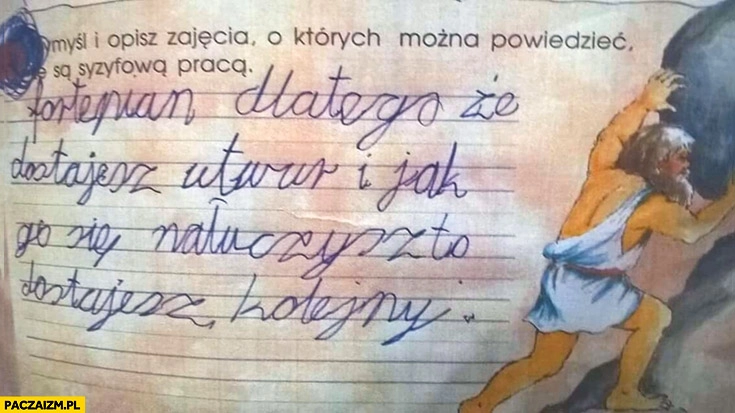 myśl i opisz zajęcia, o których można powiedzieć,
są syzyfową pracą.
fortepian dlatego że
dostajesz utwur i jak
go się nałuczysz to
dostajesz kolejny.
PACZAIZM.PL